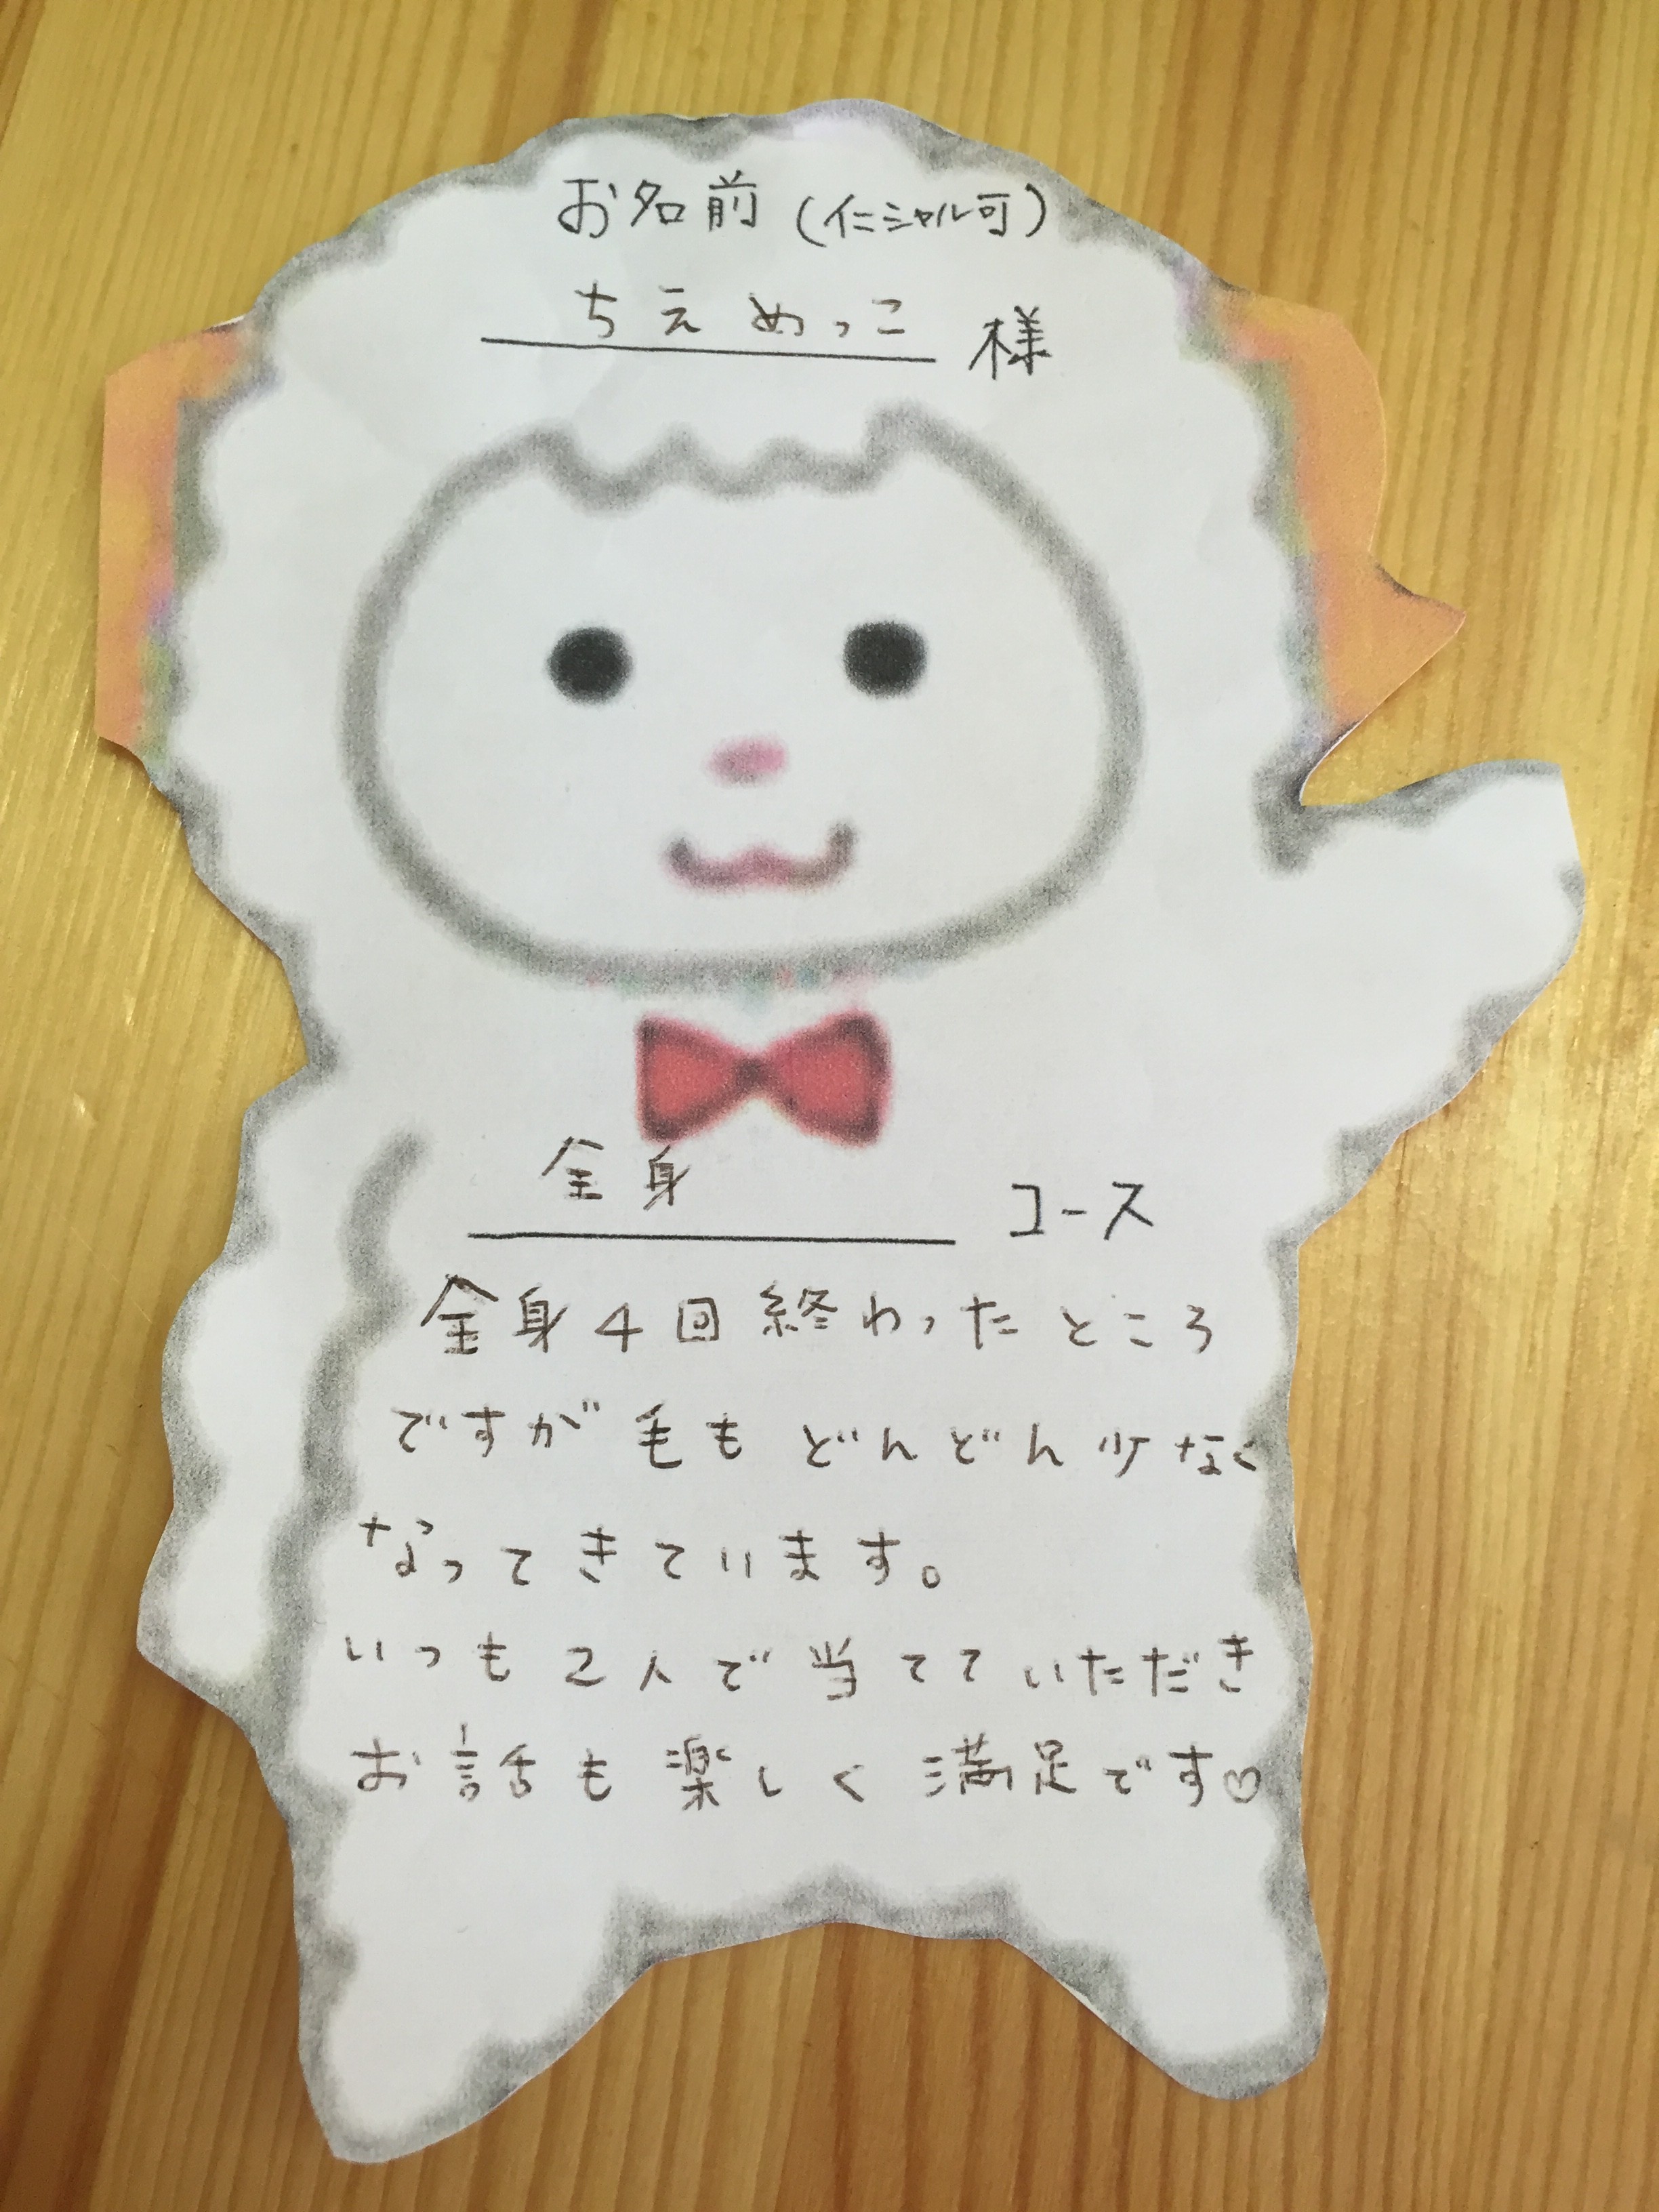 お名前 (イニシャル可)
ちえめっこ 様
全身 コース
全身4回終わったところ
ですが毛もどんどん少なく
なってきています。
いつも2人で当てていただき
お話も楽しく満足です♡